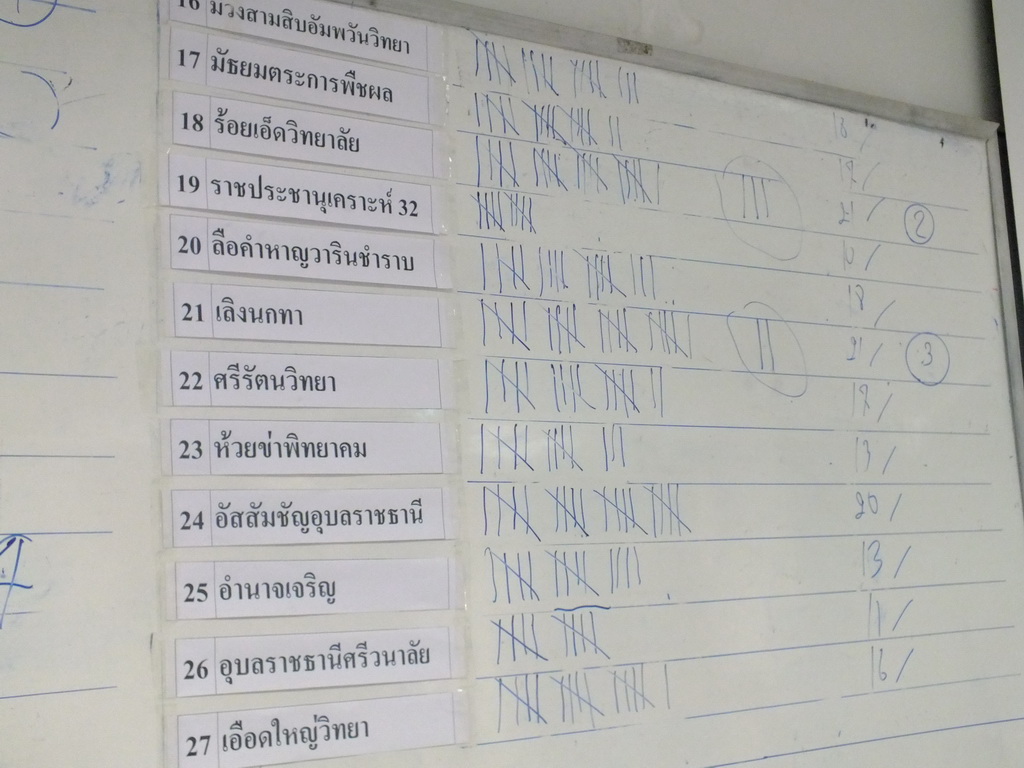 16 ม่วงสามสิบอัมพวันวิทยา
17 มัธยมตระการพืชผล 18 /
18 ร้อยเอ็ดวิทยาลัย 21 / 2
19 ราชประชานุเคราะห์ 32 10 /
20 ลือคำหาญวารินชำราบ 18 /
21 เลิงนกทา 21 / 3
22 ศรีรัตนวิทยา
23 ห้วยข่าพิทยาคม 13 /
24 อัสสัมชัญอุบลราชธานี 20 /
25 อำนาจเจริญ 13 /
26 อุบลราชธานีศรีวนาลัย 11 /
27 เอือดใหญ่วิทยา 16 /